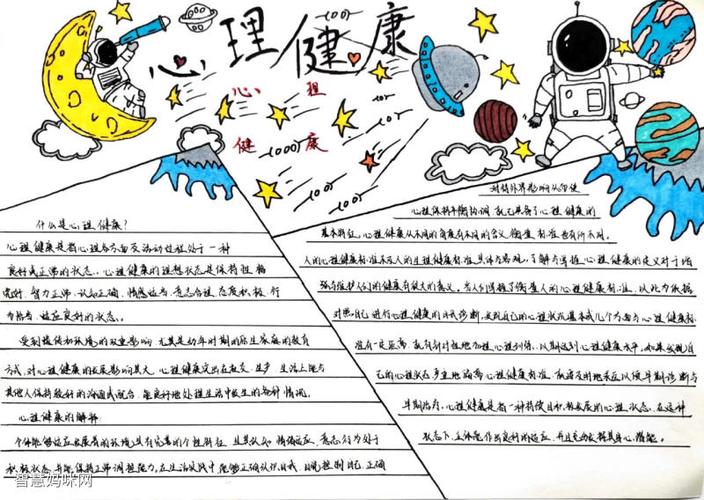 心理健康
心理
健康
什么是心理健康?
心理健康是指心理各方面及活动过程处于一种
良好或正常的状态。心理健康的理想状态是保持性格
完好、智力正常、认知正确、情感适当、意志合理、态度积极、行
为恰当、适应良好的状态。
受到遗传和环境的双重影响,尤其是幼年时期的原生家庭的教育
方式,对心理健康的发展影响甚大。心理健康突出在社交、生产、生活上能与
其他人保持较好的沟通或配合,能良好地处理生活中发生的各种情况。
心理健康的解释
个体能够适应发展着的环境,具有完善的个性特征,且其认知、情绪反应、意志行为处于
积极状态,并能保持正常调控能力。在生活实践中,能够正确认识自我,自觉控制自己,正确
对待外界影响从而使
心理保持平衡协调,就已具备了心理健康的
基本特征。心理健康从不同的角度有不同的含义,衡量标准也有所不同。
人的心理健康标准不及人的生理健康标准具体与客观。了解与掌握心理健康的定义对于增
强与维护人们的健康有很大的意义。当人们掌握了衡量人的心理健康标准,以此为依据
对照自己,进行心理健康的自我诊断。发现自己的心理状况某个或几个方面与心理健康标
准有一定距离,就有针对性地加强心理锻炼,以期达到心理健康水平。如果发现自
己的心理状态严重地偏离心理健康标准,就要及时地求医,以便早期诊断与
早期治疗。心理健康是指一种持续且积极发展的心理状态,在这种
状态下,主体能作出良好的适应,并且充分发挥其身心潜能。
智慧妈咪网